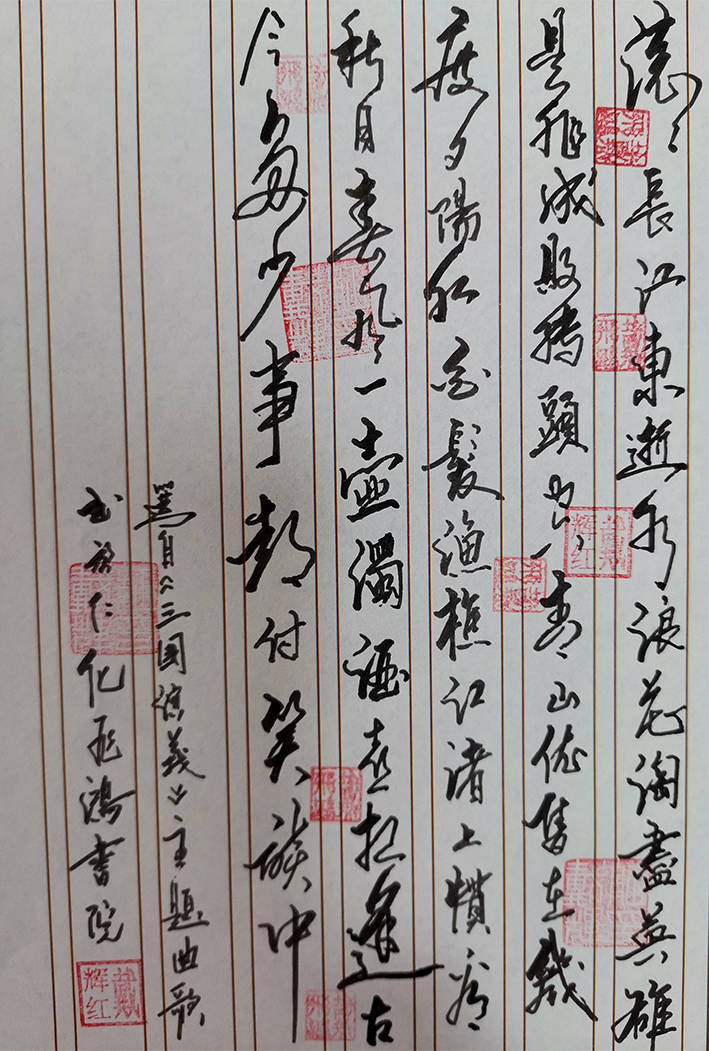 滚〻長江東逝水浪花淘盡英雄
是非成敗轉頭空青山依舊在幾
度夕陽紅白髮漁樵江渚上慣看
秋月春風一壺濁酒喜相逢古
今多少事都付笑談中
寫自《三国演義》主題曲歌
书於仁化飛鴻書院
戴辉红